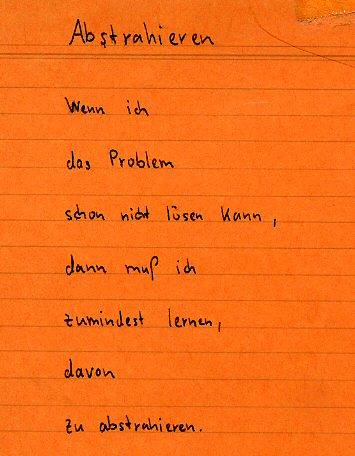 Abstrahieren
Wenn ich
das Problem
schon nicht lösen kann,
dann muß ich
zumindest lernen,
davon
zu abstrahieren.